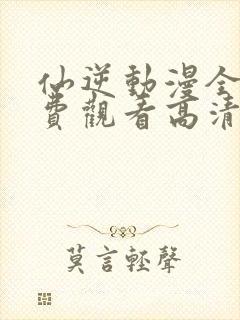 仙逆動漫全
費觀看高清
莫言輕聲